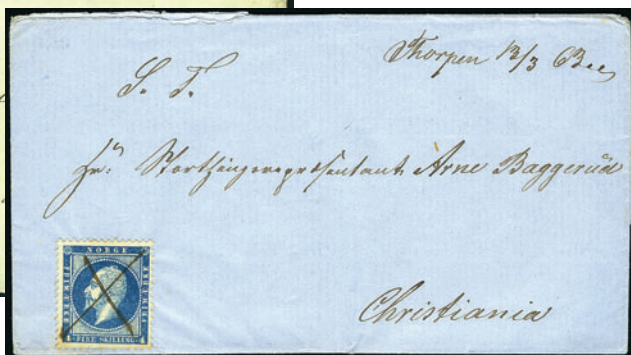 Thorpen 13/3 63
S. T.
Hr: Storthingsrepræsentant Arne Baggerud
Christiania
NORGE
FRIMÆRKE
FRIMÆRKE
4 FIRE SKILLING 4